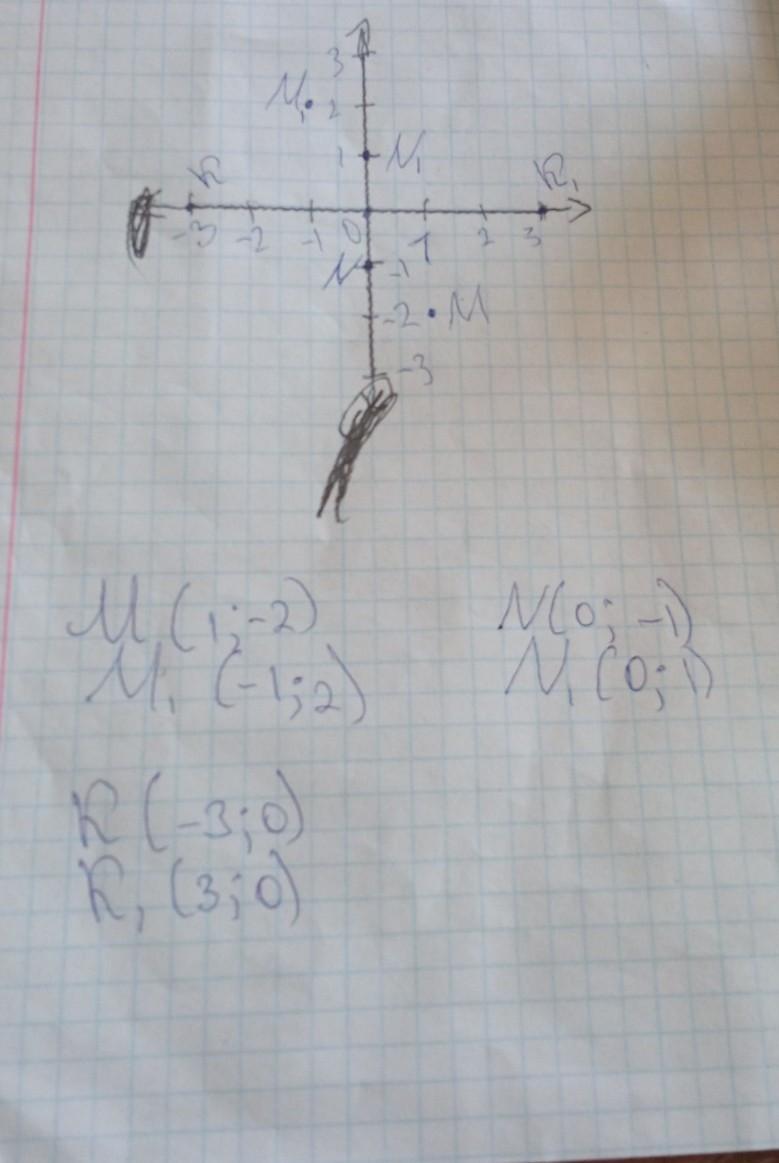 3
M₁ 2
1 N₁
K K₁
-3 -2 -1 0 1 2 3
N -1
-2 M
-3
M (1;-2) N(0; -1)
M₁ (-1;2) N₁ (0;1)
K (-3;0)
K₁ (3;0)